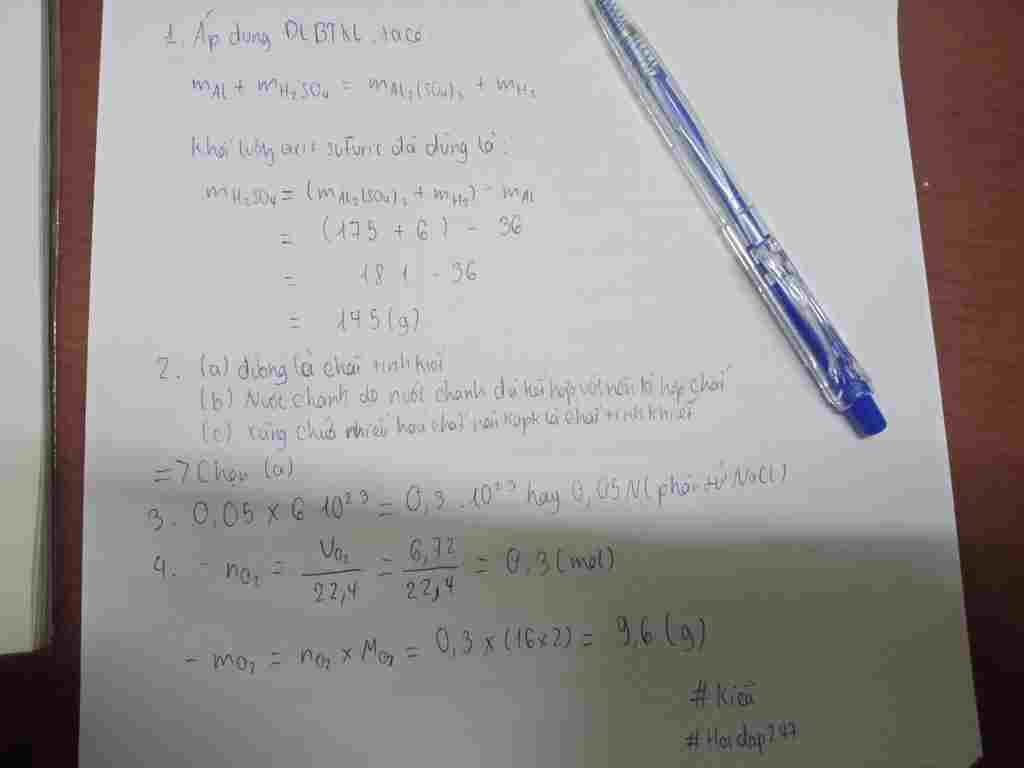 1. Áp dụng ĐLBTKL, ta có
mAl + mH₂SO₄ = mAl₂(SO₄)₃ + mH₂
Khối lượng axit sufuric đã dùng là:
mH₂SO₄ = (mAl₂(SO₄)₃ + mH₂) - mAl
= (175 + 6) - 36
= 181 - 36
= 145 (g)
2. (a) đường là chất tinh khiết
(b) Nước chanh do nước chanh đã
(c) Xăng chứa nhiều hóa chất nên kopk là chất tinh khiết
=> Chọn (a)
3. 0,05 × 6 10²³ = 0,3 . 10²³ hay 0,05N (phân tử NaCl)
4. - nO₂ = VO₂/22,4 = 6,72/22,4 = 0,3 (mol)
- mO₂ = nO₂ × MO₂ = 0,3 × (16×2) = 9,6 (g)
#Kiều
#Hoidap247